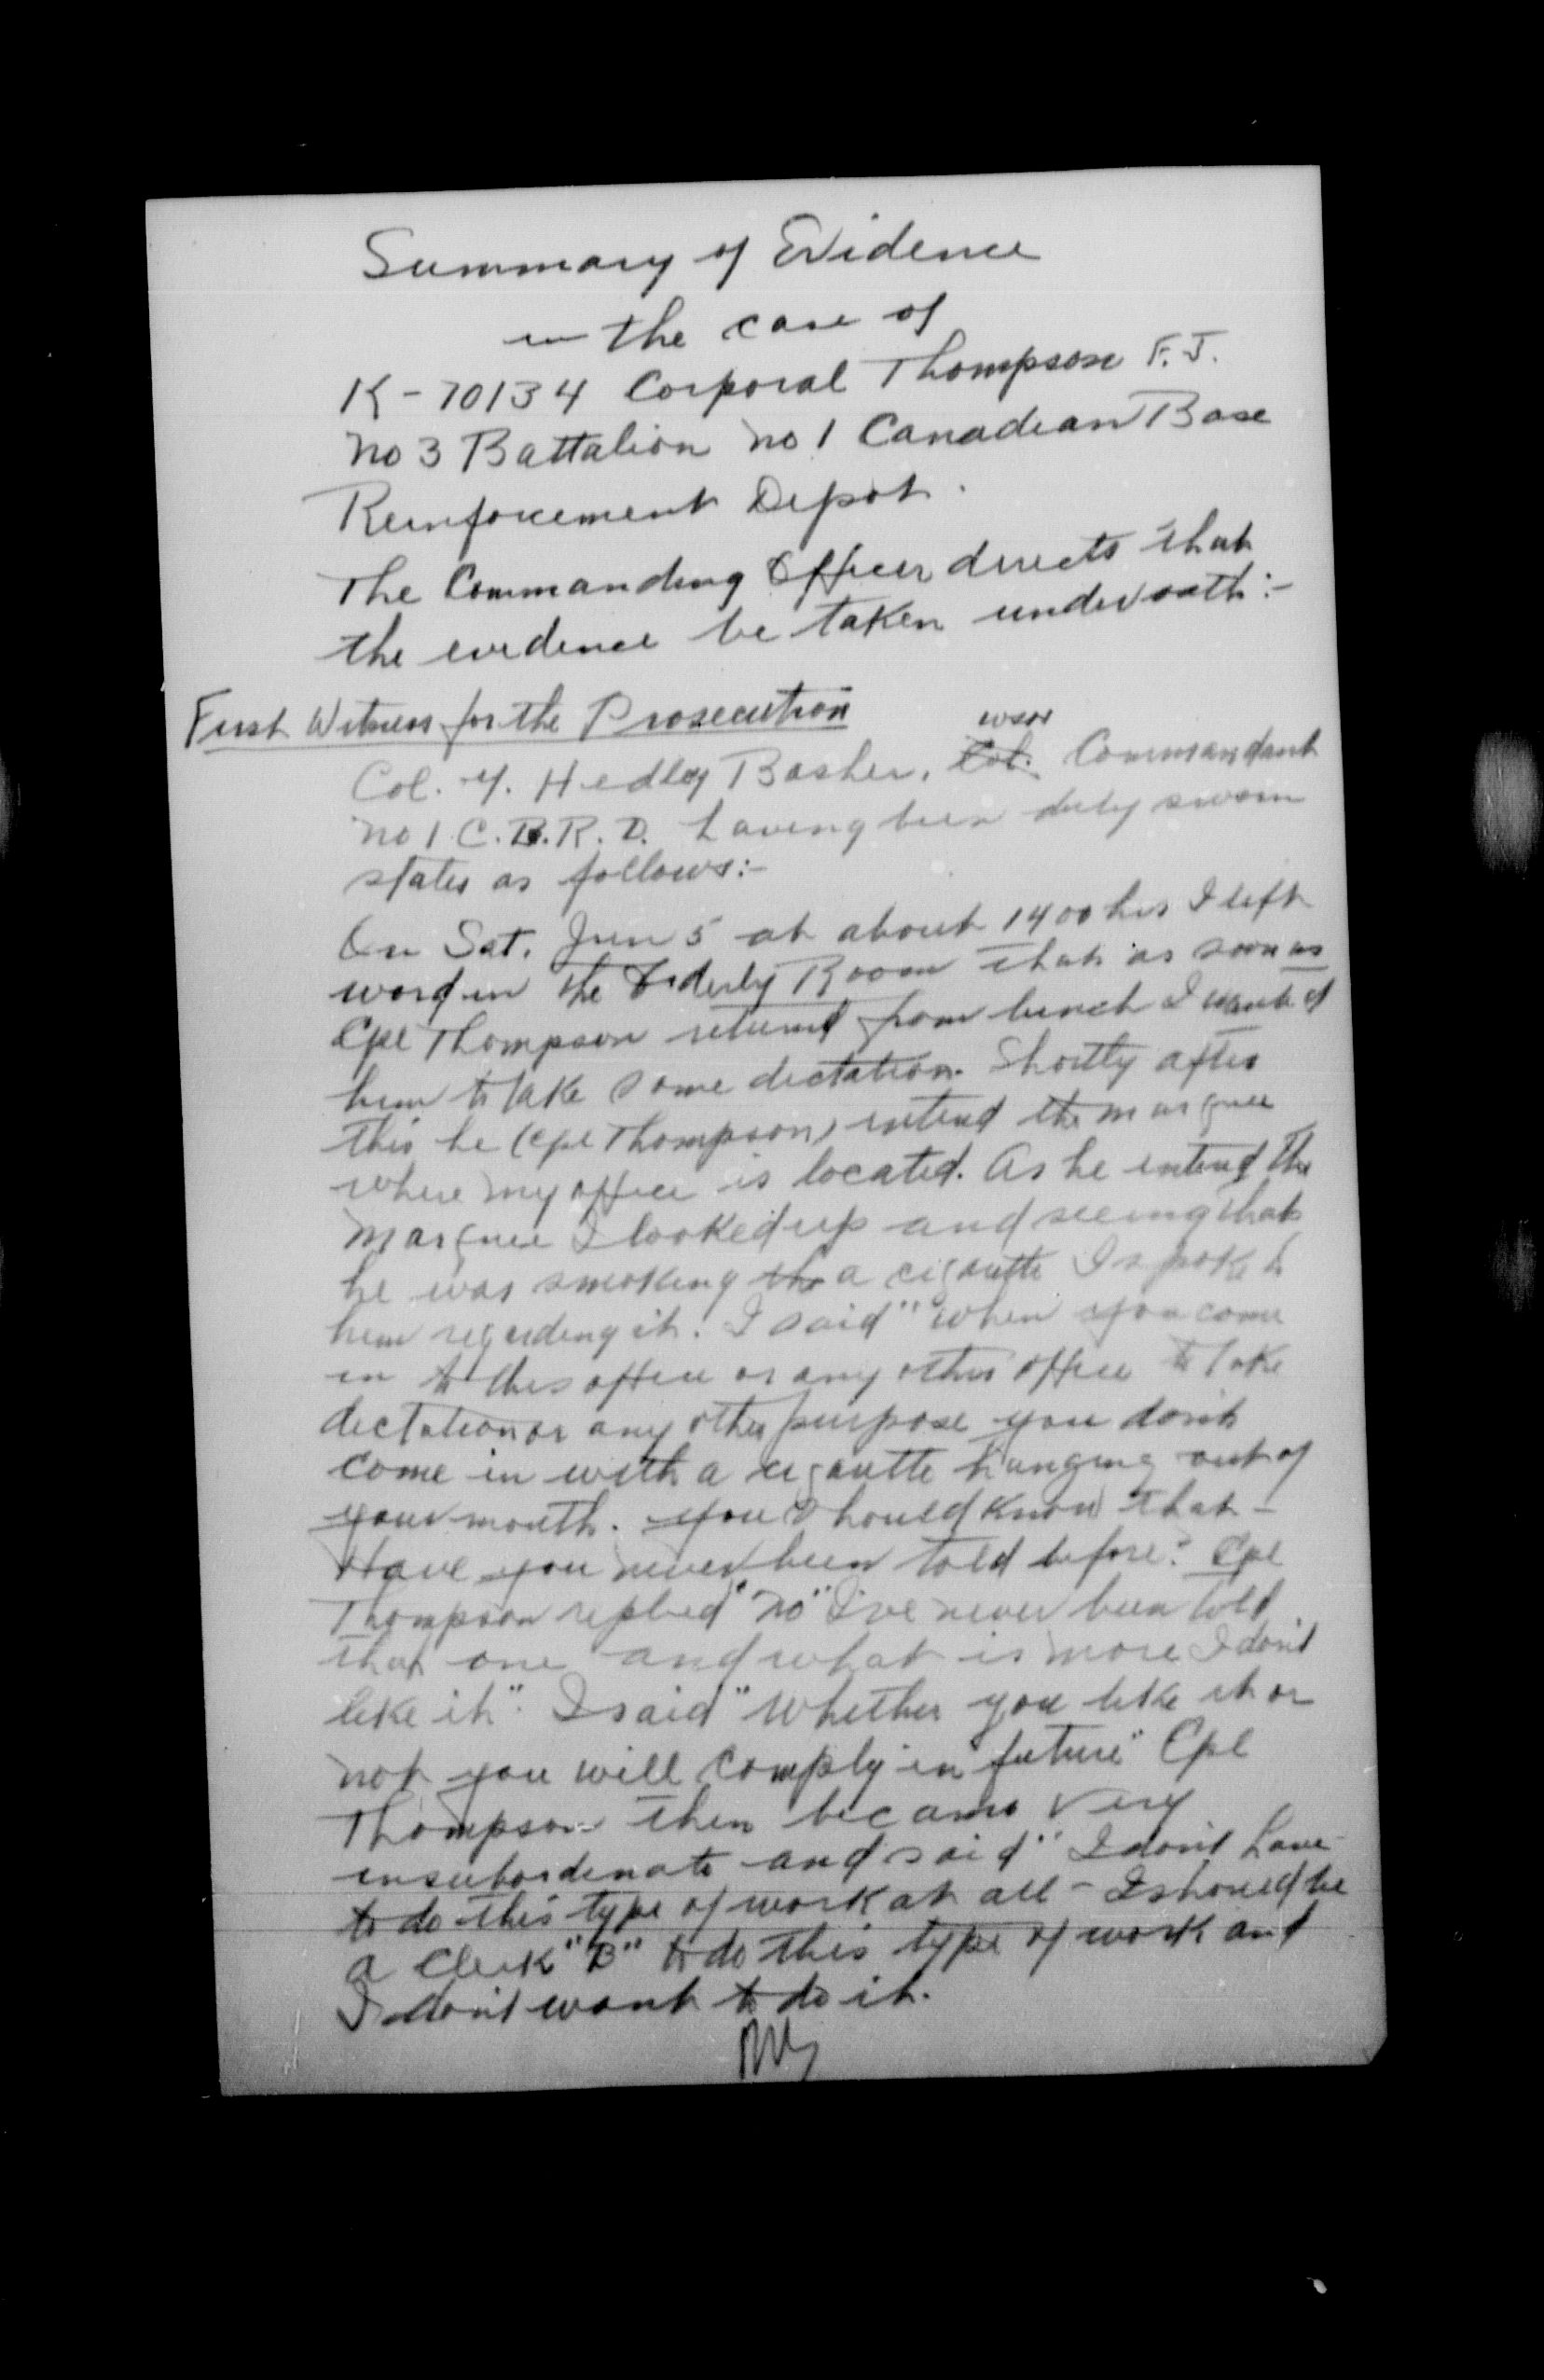 Summary of Evidence
in the case of
K-70134 Corporal Thompson F.J.
No 3 Battalion No 1 Canadian Base
Reinforcement Depot.
The Commanding Officer directs that
the evidence be taken under oath:-
First Witness for the Prosecution
Col. Hedley Basher, Col. Commandant
No 1 C.B.R.D. having been duly sworn
states as follows:-
On Sat. Jun 5 at about 1400 hrs I left
word in the Orderly Room that as soon as
Cpl Thompson returned from lunch I wanted
him to take some dictation. Shortly after
this he (Cpl Thompson) entered the marquee
where my office is located. As he entered the
marquee I looked up and seeing that
he was smoking the a cigarette I spoke to
him regarding it. I said "when you come
in to this office or any other office to take
dictation or any other purpose you don't
come in with a cigarette hanging out of
your mouth. You should know that -
Have you never been told before? Cpl
Thompson replied "No" I've never been told
that one and what is more I don't
like it". I said "Whether you like it or
not you will comply in future" Cpl
Thompson then became very
insubordinate and said "I don't have
to do this type of work at all - I should be
a Clerk "B" to do this type of work and
I don't want to do it.